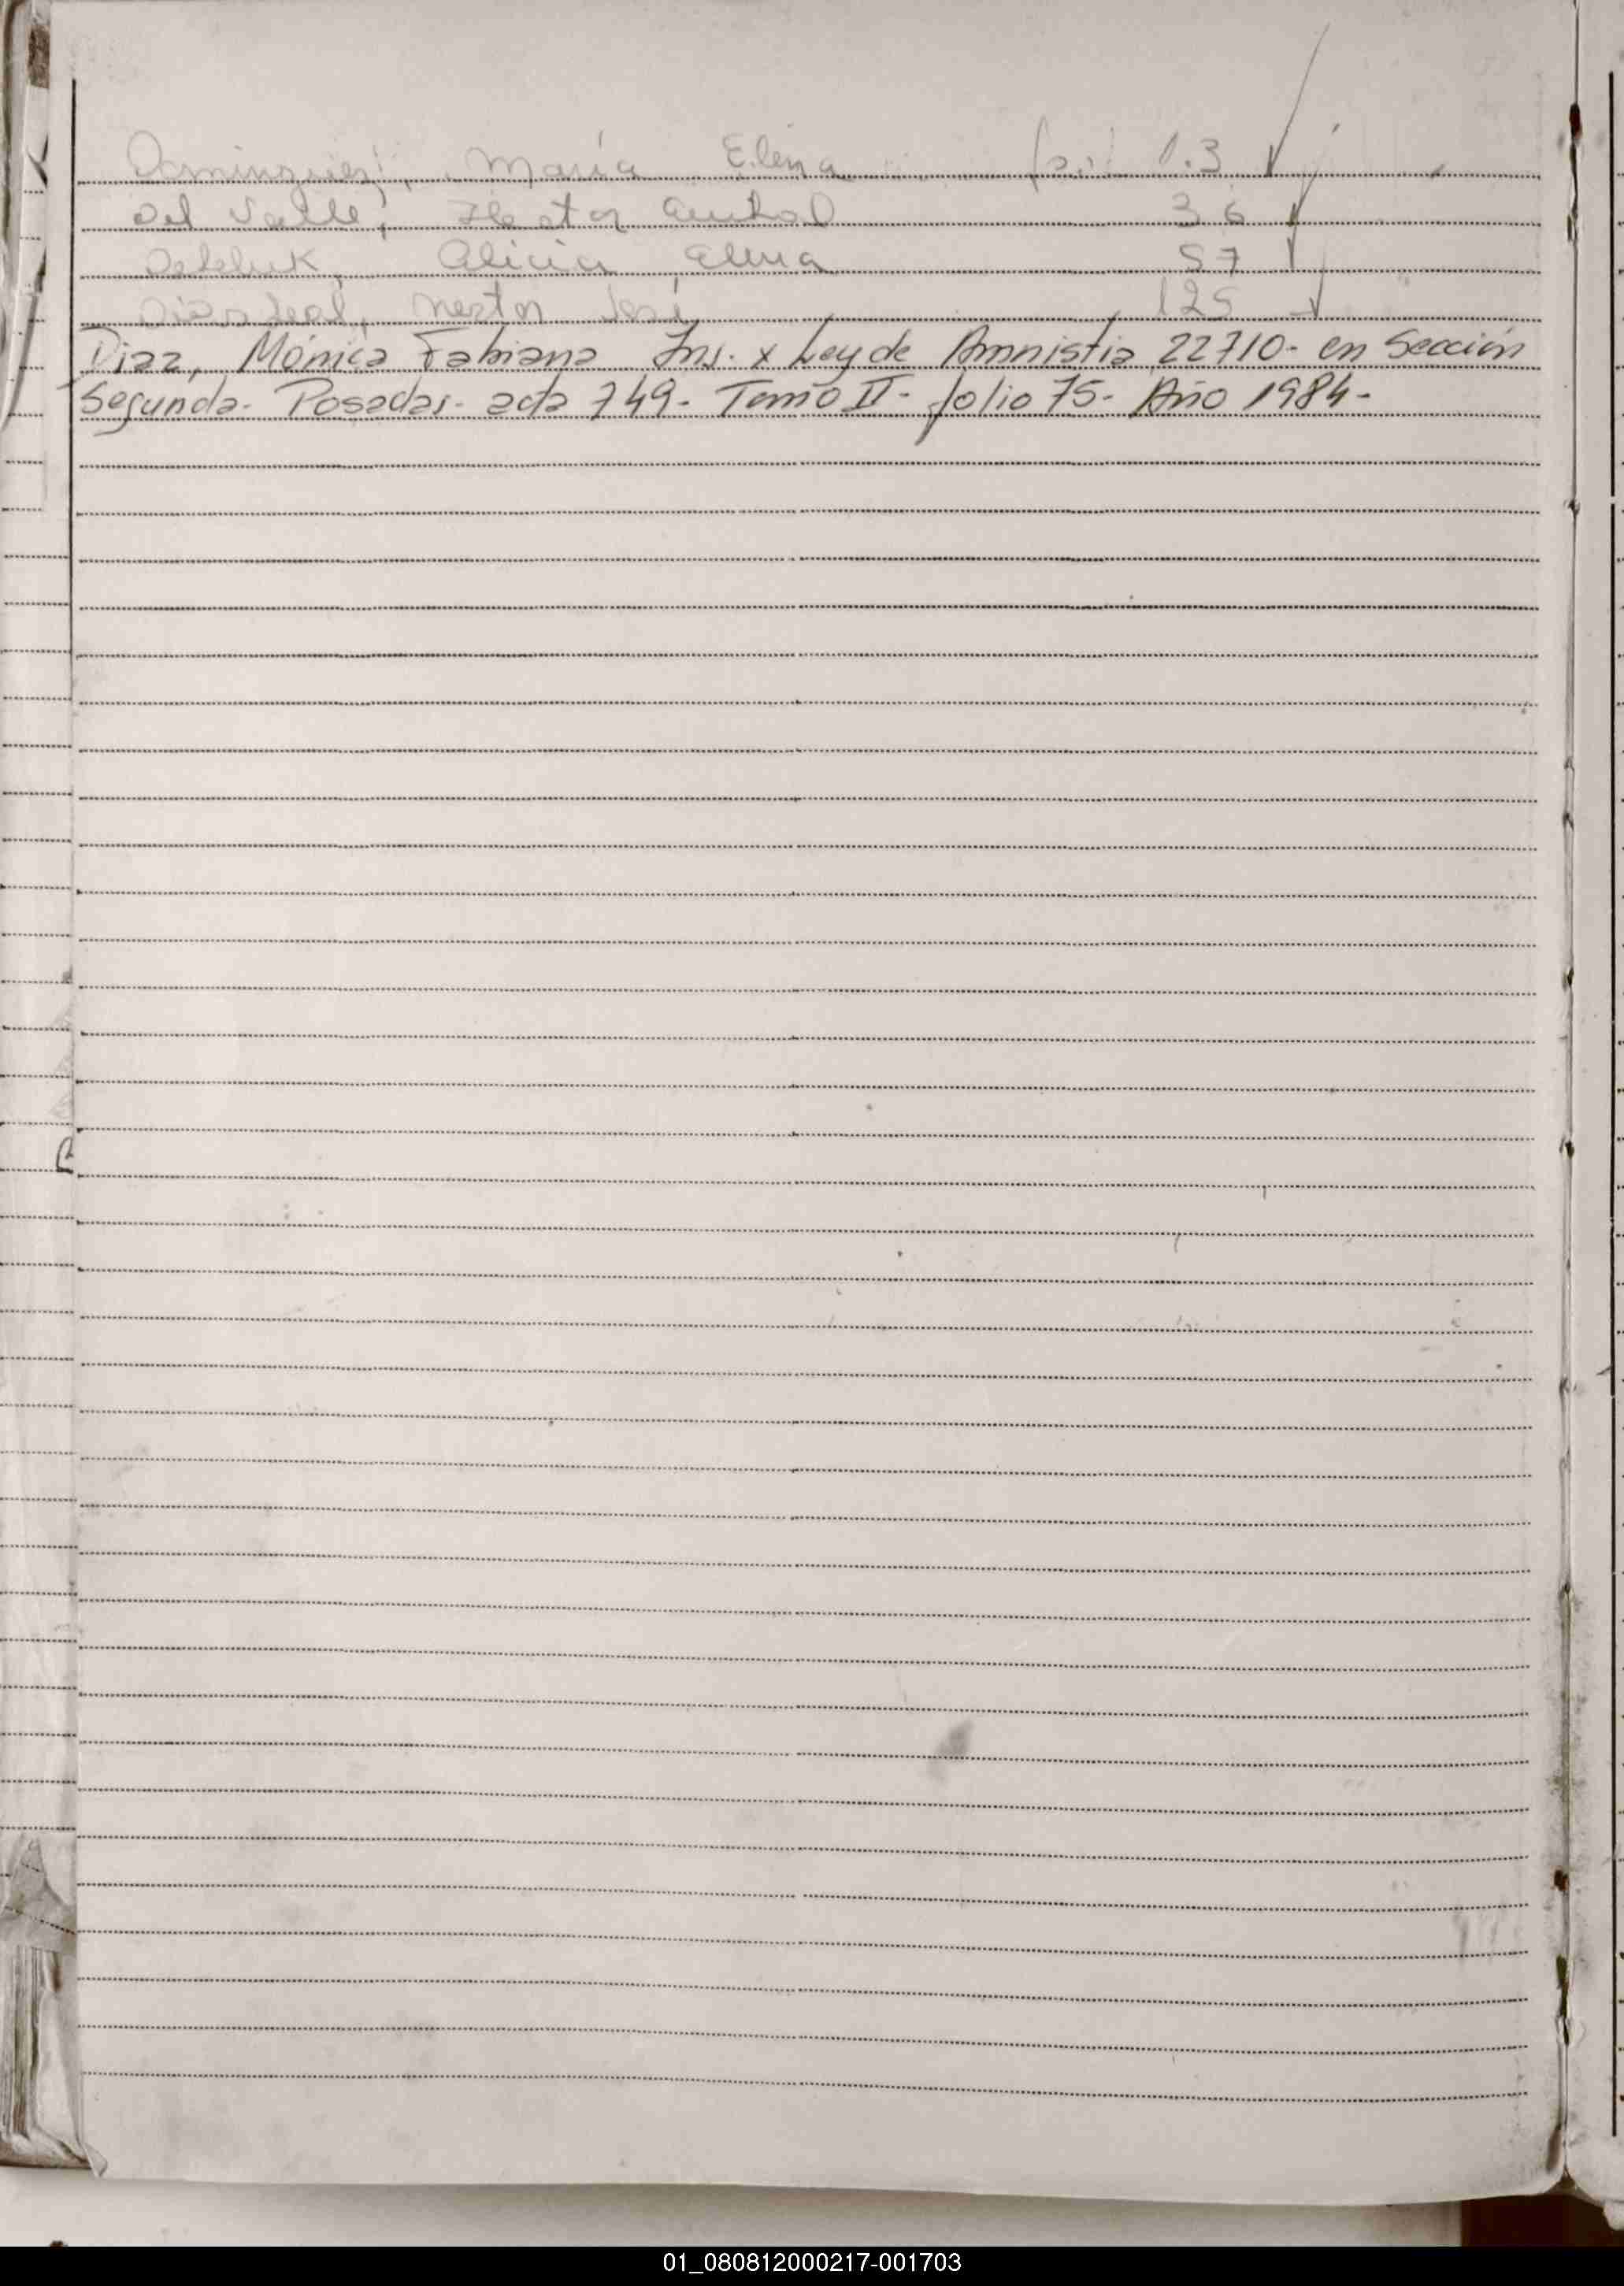 Dominguez, María Elena fol 13
Del Valle, Hector
Alicia Elena 57
Nestor José 125
Diaz, Mónica Fabiana Ins. x Ley de Amnistia 22710- en Sección
Segunda- Posadas- acta 749- Tomo II- folio 75- Año 1984-
01_080812000217-001703